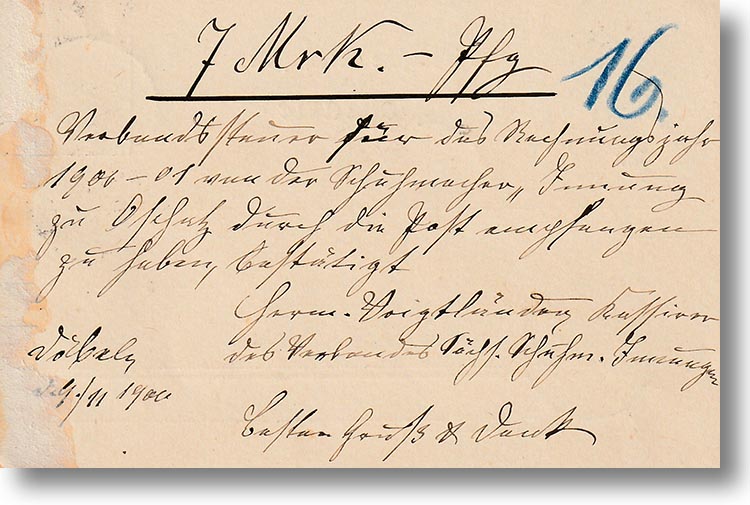 7 Mrk. – Pfg
16.
Verbandssteuer für das Rechnungsjahr
1900–01 von der Schuhmacher„ Innung
zu Oschatz durch die Post empfangen
zu haben, bestätigt
Herm. Voigtländer, Kassierer
des Verbandes Sächs. Schuhm. Innungen
Döbeln,
9./11 1900
Besten Gruß & Dank